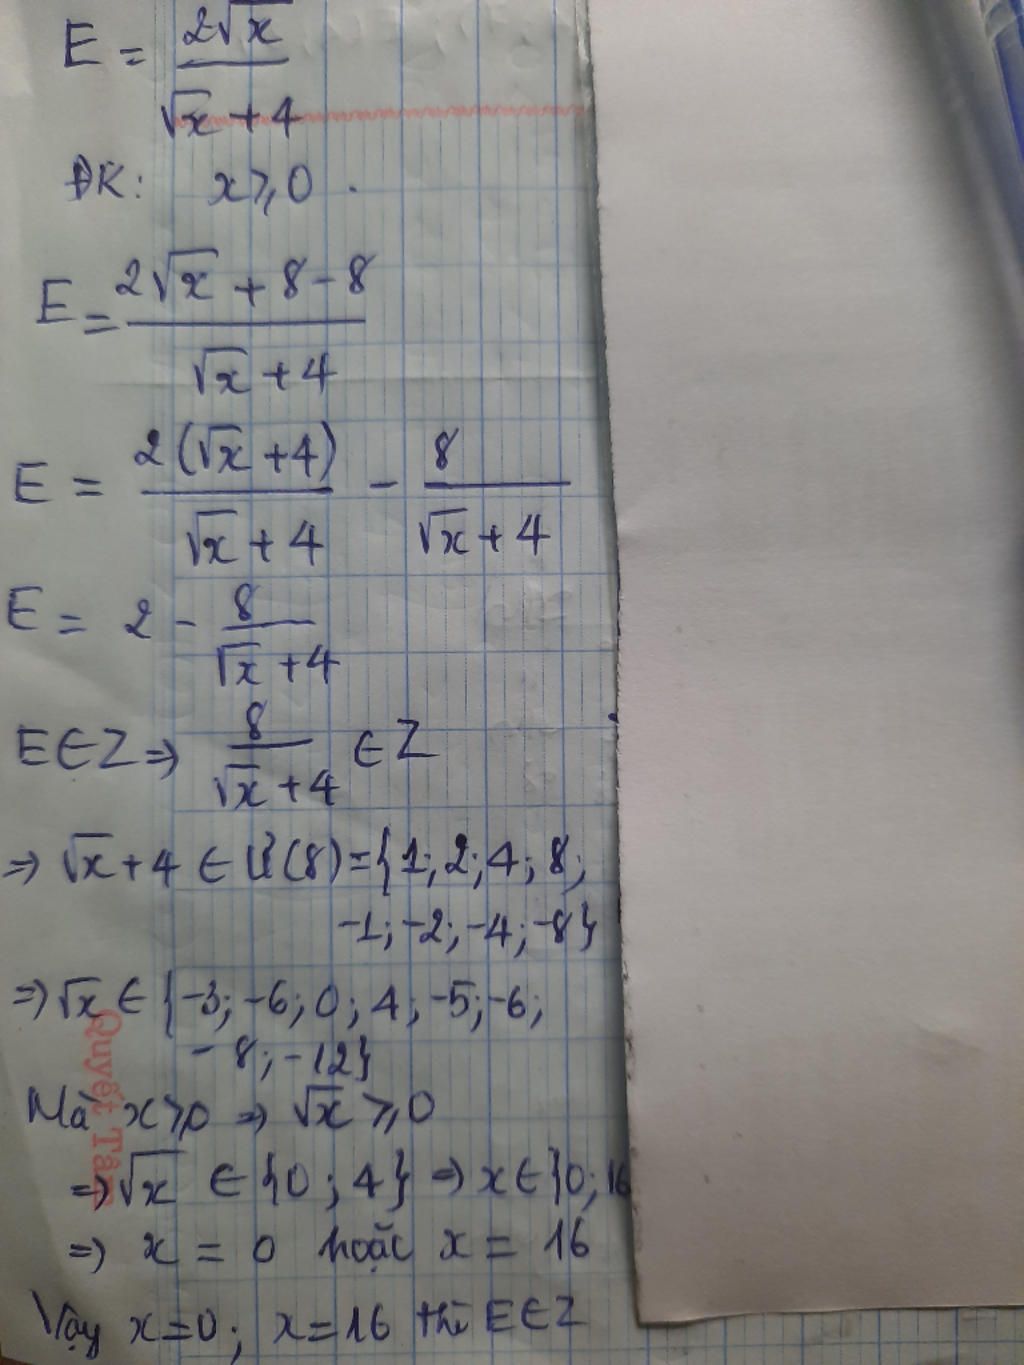 E = 2√x / (√x + 4)
ĐK: x ≥ 0.
E = (2√x + 8 - 8) / (√x + 4)
E = 2(√x + 4) / (√x + 4) - 8 / (√x + 4)
E = 2 - 8 / (√x + 4)
E∈Z ⇒ 8 / (√x + 4) ∈ Z
⇒ √x + 4 ∈ Ư(8) = {1; 2; 4; 8;
-1; -2; -4; -8}
⇒ √x ∈ {-3; -6; 0; 4; -5; -6;
-8; -12}
Mà x ≥ 0 ⇒ √x ≥ 0
⇒ √x ∈ {0; 4} ⇒ x ∈ {0; 16
⇒ x = 0 hoặc x = 16
Vậy x = 0; x = 16 thì E∈Z
Quyết